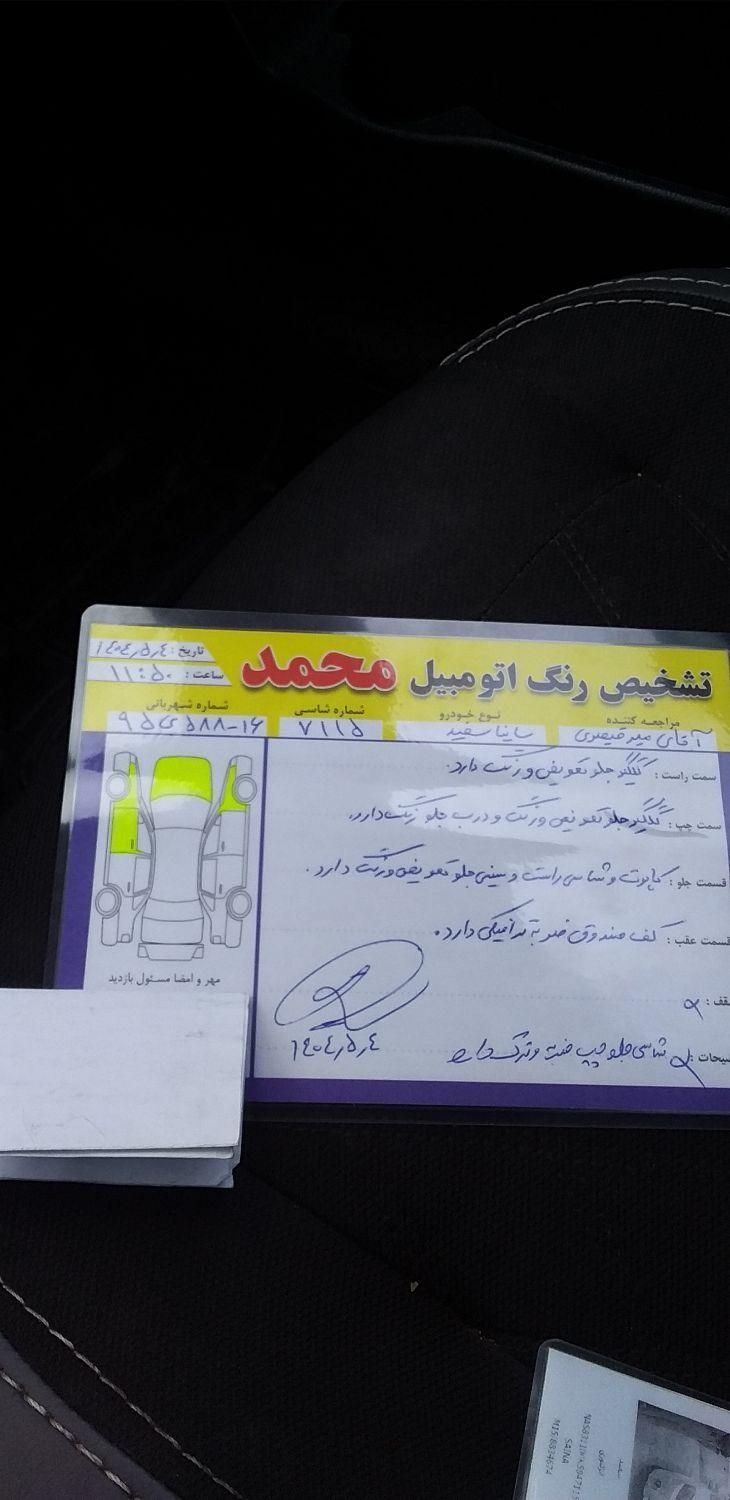 تشخیص رنگ اتومبیل محمد
تاریخ : ۱۴۰۴٫۵٫۴
ساعت : ۱۱:۵۰
مراجعه کننده
آقای میرقیصری
نوع خودرو
ساینا سفید
شماره شاسی
۷۱۱۵
شماره شهربانی
۹۵ ی ۵۸۸-۱۶
سمت راست : گلگیر جلو تعویض و رنگ دارد.
سمت چپ : گلگیر جلو تعویض و رنگ و درب جلو رنگ دارد.
قسمت جلو : کاپوت و شاسی راست و سینی جلو تعویض و رنگ دارد.
قسمت عقب : کف صندوق ضربه مکانیکی دارد.
سقف :
شاسی جلو چپ ضربه و ترک دارد
۱۴۰۴٫۵٫۴
مهر و امضا مسئول بازدید
SAINA
M15/8834674